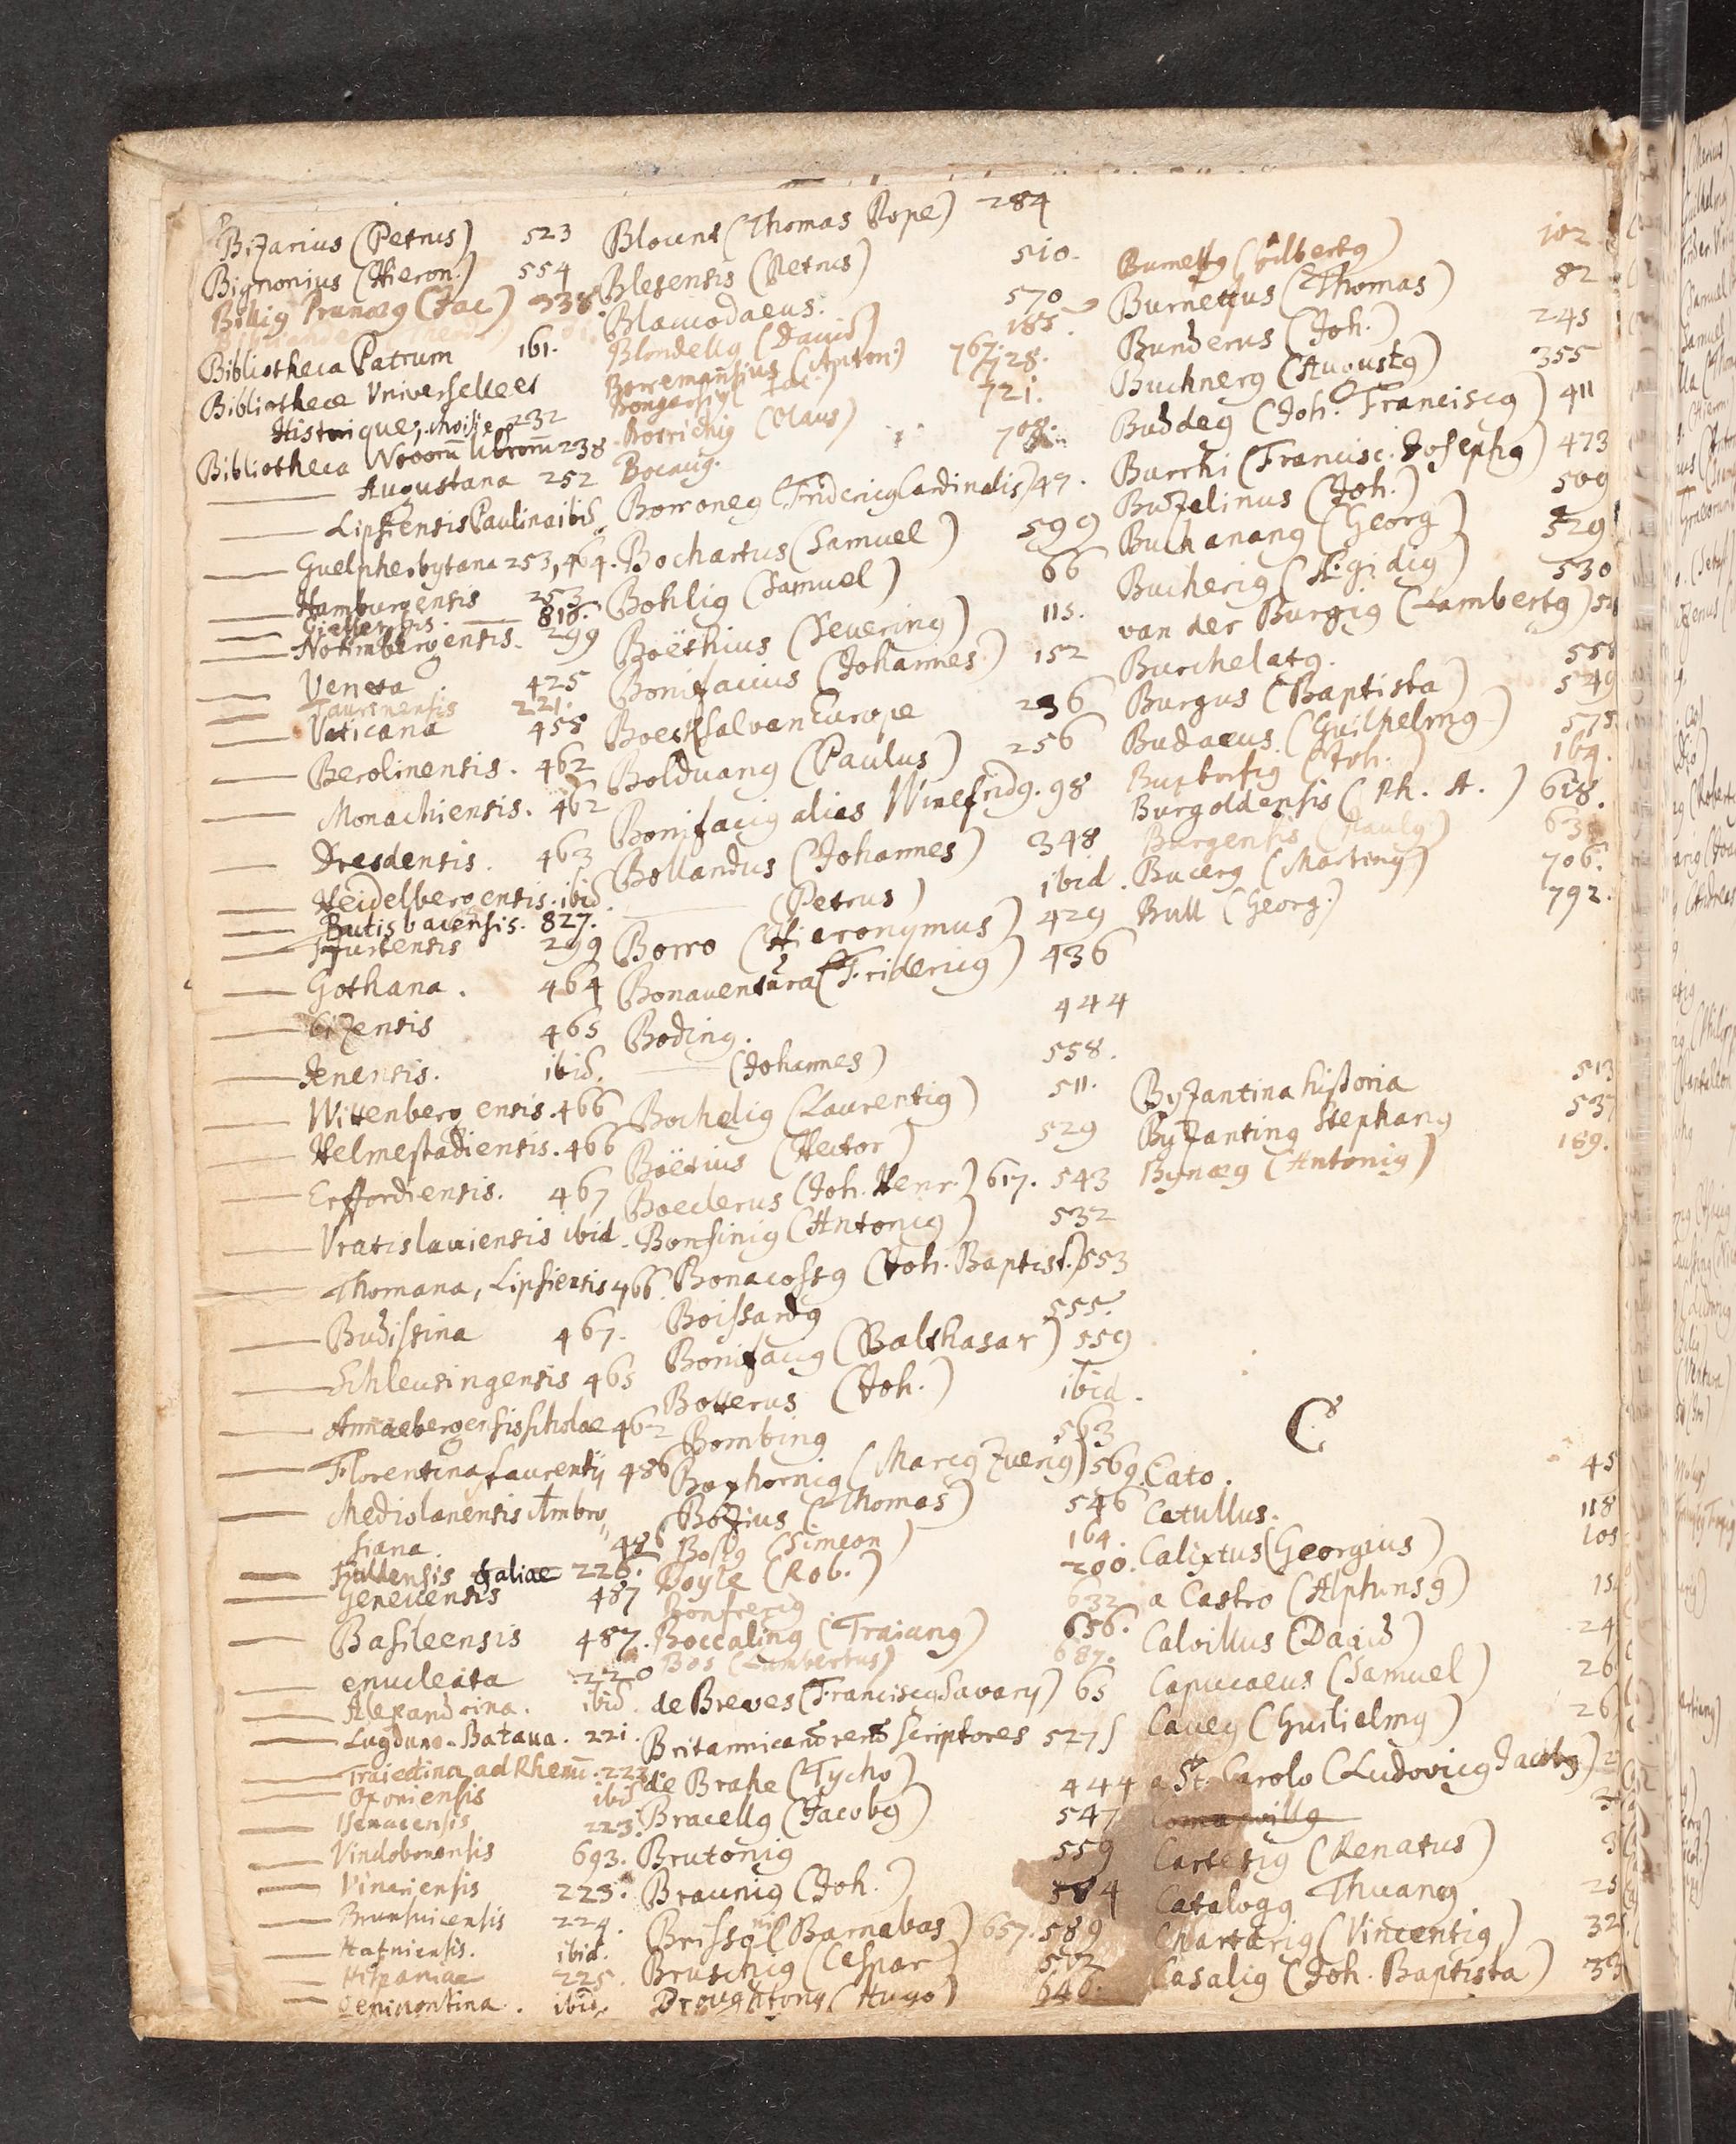 Bizarius (Petrus) 523
Bignonius (Hieron.) 554
Billig Prunæg (Jac) 338
Bibliotheca Patrum 161.
Bibliothece Vniverselle et
Historique, choisie 232
Bibliotheca Novorū librorū 238
— Augustana 252
— Lipsiensis Paulina ibid.
— Guelpherbytana 253, 464.
— Hamburgensis 253
— Giessensis. 818.
— Norimbergensis. 299
— Veneta 425
— Taurinensis 221.
— Vaticana 455
— Berolinensis. 462
— Monachiensis. 462
— Dresdensis. 463
— Heidelbergensis. ibid.
— Ratisbonensis. 827.
— 299
— Gothana. 464
— Cizensis 465
— Jenensis. ibid.
— Wittenbergensis. 466
— Helmestadiensis. 466
— Erffordiensis. 467
— Vratislauiensis ibid.
— Thomana, Lipsiensis 466.
— Budissina 467.
— Schleusingensis 465
— Annaebergensis scholae 462
— Florentina Laurentij 486
— Mediolanensis Ambro„
siana 486
— 226.
— Genevensis 487
— Basileensis 487.
— enucleata 220
— Alexandrina. ibid.
— Lugduno-Bataua. 221.
— Traiectina ad Rhenū. 223.
— Oxoniensis ibid
— Isenacensis 223.
— Vindobonensis 693.
— Vinariensis 223.
— Brunsuicensis 224.
— Hafniensis. ibid.
— Hispaniae 225.
— ibid.
Blount (Thomas Pope) 284
Blesensis (Petrus) 510.
Blacuodaeus. 570
Blondellg (David) 185.
Borremansius (Anton.) 767. 728.
Bongarsiy (Jac.) 721.
Borrichig (Olaus) 708.
Bocaug.
Borroneg (Fridericg Cardinalis) 47.
Bochartus (Samuel) 599
Bohlig (Samuel) 66
Boëthius (Severing) 115.
Bonifacius (Johannes) 152
Boeksal van Europe 236
Bolduang (Paulus) 256
Bonifacig alias Winefridg. 98
Bollandus (Johannes) 348
— (Petrus) ibid.
Borro (Hieronymus) 429
Bonauentura (Fridericg) 436
Boding. 444
— (Johannes) 558.
Bochelig (Laurentig) 511.
Boëtius (Hector) 529
Boeclerus (Joh. Henr.) 617. 543
Bonfinig (Antonig) 532
Bonacossg (Joh. Baptist.) 553
Boissardg 555.
Bonifacig (Balthasar) 559
Botterus (Joh.) ibid.
Bombing 563
Boxhornig (Marcg Zuerig) 569
Bozius (Thomas) 546
Bosig (Simeon) 164.
Boyle (Rob.) 200.
Bonfrerig 632
Boccaling (Traiang) 656.
Bos (Lambertus) 687.
de Breves (Franciscg Savary) 65
Britannicarū rerū scriptores 527
de Brahe (Tycho) 444
Bracellg (Jacobg) 547
Brutonig 559
Braunig (Joh.) 584
Brissonig (Barnabas) 657. 589
Bruschig (Caspar) 502
Broughtong (Hugo) 646.
Burnettg (Gilbertg) 102
Burnettus (Thomas) 82
Bunderus (Joh.) 245
Buchnerg (Augustg) 355
Buddeg (Joh. Franciscg) 411
Burrhi (Francisc. Josephg) 473
Buzelinus (Joh.) 509
Buchanang (Georg) 529
Bucherig (Ægidig) 530
van der Burgig (Lambertg)
Burchelatg.
Burgus (Baptista) 549
Budaeus (Guilhelmg) 575
Buxtorfig (Joh.) 164.
Burgoldensis (Ph. A.) 618.
Burgensis (Paulg)
Bucerg (Marting) 706.
Bull (Georg.) 792.
Byzantina historia 513
Byzanting Stephang 537
Bynæg (Antonig) 189.
C
Cato. 45
Catullus. 118
Calixtus (Georgius) 105
a Castro (Alphonsg)
Calvillus (David) 24
Capucaeus (Samuel) 26
Caveg (Guilielmg) 26
a St. Carolo (Ludovicg Jacobg)
Cartesig (Renatus)
Catalogg Thuang 25
Chartarig (Vincentig) 32
Casalig (Joh. Baptista) 33